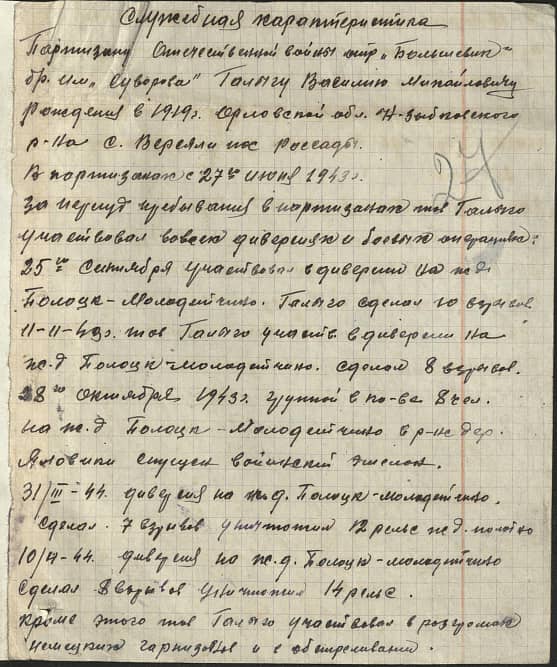 Служебная характеристика
Партизану Отечественной войны отр. „Большевик"
бр. им „Суворова" Талызу Василию Михайловичу
рождения в 1919г. Орловской обл. Н-Зыбковского
р-на с. Верезки пос Рассады.
В партизанах с 27го июня 1943г.
За период пребывания в партизанах тов Талызо
участвовал во всех диверсиях и боевых операциях:
25го Сентября участвовал в диверсии на ж.д.
Полоцк-Молодечино. Талызо сделал 10 взрывов
11-11-43г. тов Талызо участв. в диверсии на
ж.д Полоцк-молодечино. сделал 8 взрывов.
28го Октября 1943г. группой в кол-ве 8 чел.
на ж.д Полоцк-Молодечино в р-не дер.
Яловики спущен воинский эшелон.
31/III-44. диверсия на ж.д. Полоцк-молодечино.
сделал. 7 взрывов уничтожил 12 рельс ж.д. полотно
10/4-44. диверсия на ж.д. Полоцк-молодечино
сделал 8 взрывов уничтожил 14 рельс.
кроме этого тов Талызо участвовал в разгромах
немецких гарнизонов и обстреливании.
24